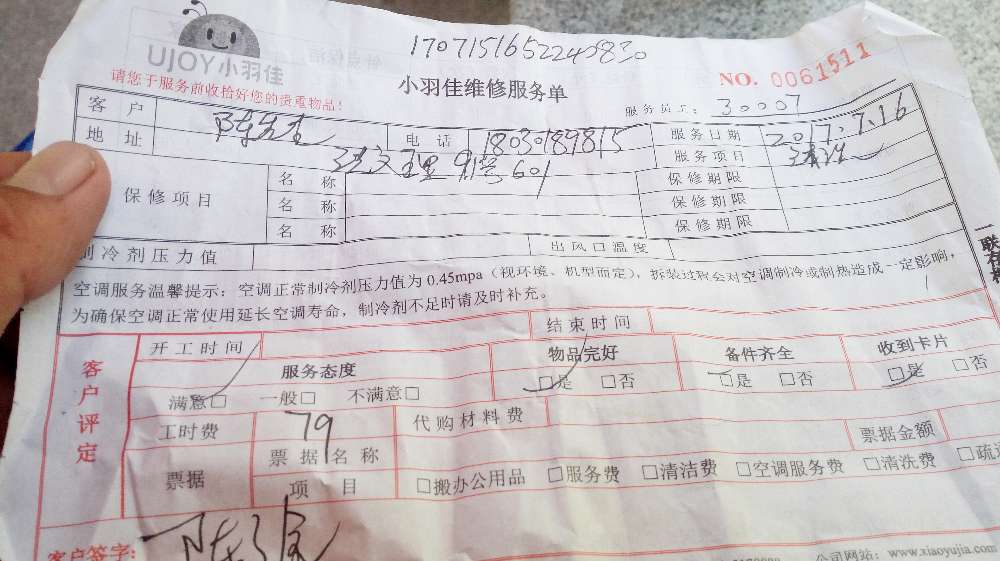 UJOY小羽佳
17071516522405830
NO. 0061511
请您于服务前收拾好您的贵重物品！
小羽佳维修服务单
服务员工：30007
客户 电话 18030189815 服务日期 2017.7.16
地址 91号601 服务项目 清洗
保修项目 名称 保修期限
名称 保修期限
名称 保修期限
制冷剂压力值 出风口温度
空调服务温馨提示：空调正常制冷剂压力值为0.45mpa（视环境、机型而定），拆装过程会对空调制冷或制热造成一定影响，
为确保空调正常使用延长空调寿命，制冷剂不足时请及时补充。
客户评定
开工时间 结束时间
服务态度 物品完好 备件齐全 收到卡片
满意□ 一般□ 不满意□ □是 □否 □是 □否 □是 □否
工时费 79 代购材料费 票据金额
票据 票据名称
项目 □搬办公用品 □服务费 □清洁费 □空调服务费 □清洗费
客户签字：
公司网站：www.xiaoyujia.com